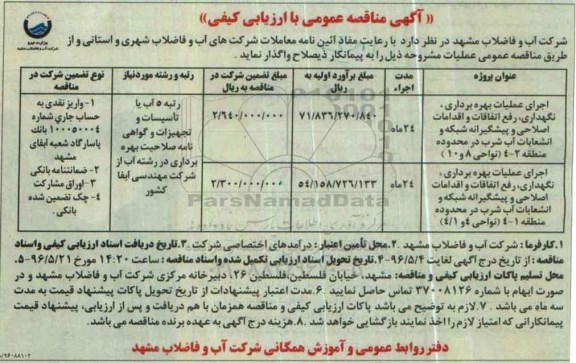 « آگهی مناقصه عمومی با ارزیابی کیفی»
شرکت آب و فاضلاب مشهد در نظر دارد با رعایت مفاد آئین نامه معاملات شرکت های آب و فاضلاب شهری و استانی و از
طریق مناقصه عمومی عملیات مشروحه ذیل را به پیمانکار ذیصلاح واگذار نماید .
عنوان پروژه
مدت اجراء
مبلغ برآورد اولیه به ریال
مبلغ تضمین شرکت در مناقصه به ریال
رتبه و رشته موردنیاز
نوع تضمین شرکت در مناقصه
اجرای عملیات بهره برداری ،
نگهداری، رفع اتفاقات و اقدامات
اصلاحی و پیشگیرانه شبکه و
انشعابات آب شرب در محدوده
منطقه ۲-۴ (نواحی ۸ و ۱۰)
۲۴ماه
۷۱/۸۳۶/۲۷۰/۸۴۰
۲/۶۴۰/۰۰۰/۰۰۰
اجرای عملیات بهره برداری ،
نگهداری، رفع اتفاقات و اقدامات
اصلاحی و پیشگیرانه شبکه و
انشعابات آب شرب در محدوده
منطقه ۱-۴ (نواحی ۴ و ۴/۱)
۲۴ماه
۵۴/۱۵۸/۷۲۶/۱۳۳
۲/۳۰۰/۰۰۰/۰۰۰
رتبه ۵ آب یا
تأسیسات و
تجهیزات و گواهی
نامه صلاحیت بهره
برداری در رشته آب از
شرکت مهندسی آبفا
کشور
۱-واریز نقدی به
حساب جاری شماره
۱۰۰۰۵۰۰۰۴ بانک
پاسارگاد شعبه آبفای
مشهد
۲-ضمانتنامه بانکی
۳-اوراق مشارکت
۴-چک تضمین شده
بانکی.
ParsNamadData
۱.کارفرما : شرکت آب و فاضلاب مشهد .۲.محل تأمین اعتبار : درآمدهای اختصاصی شرکت .۳.تاریخ دریافت اسناد ارزیابی کیفی واسناد
مناقصه : از تاریخ درج آگهی لغایت ۹۶/۵/۴ .۴.تاریخ تحویل اسناد ارزیابی تکمیل شده واسناد مناقصه : ساعت ۱۴:۲۰ مورخ ۹۶/۵/۲۱ .۵.
محل تسلیم پاکات ارزیابی کیفی و مناقصه : مشهد، خیابان فلسطین،فلسطین ۲۶، دبیرخانه مرکزی شرکت آب و فاضلاب مشهد و در
صورت ابهام با شماره ۳۷۰۰۸۱۲۶ تماس حاصل نمایید .۶.مدت اعتبار پیشنهادات از تاریخ تحویل پاکات پیشنهاد قیمت به مدت
سه ماه می باشد .۷.لازم به توضیح می باشد پاکات ارزیابی کیفی و مناقصه همزمان با هم دریافت و پس از ارزیابی، پیشنهاد قیمت
پیمانکارانی که امتیاز لازم را اخذ نمایند بازگشایی خواهد شد .۸.هزینه درج آگهی به عهده برنده مناقصه می باشد.
دفتر روابط عمومی و آموزش همگانی شرکت آب و فاضلاب مشهد